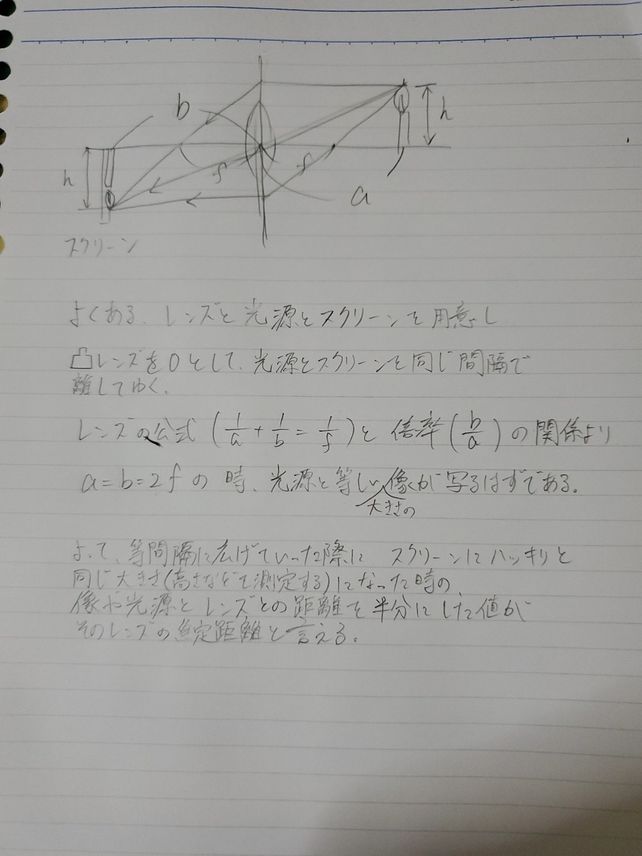 b
h
h
f
f
a
スクリーン
よくある、レンズと光源とスクリーンを用意し
凸レンズを0として、光源とスクリーンを同じ間隔で
離してゆく。
レンズの公式 (1/a + 1/b = 1/f) と 倍率 (b/a) の関係より
a=b=2f の時、光源と等しい大きさの像が写るはずである。
よって、等間隔に広げていった際に スクリーンにハッキリと
同じ大きさ(高さなどで測定する)になった時の、
像や光源とレンズとの距離を半分にした値が
そのレンズの焦点距離と言える。